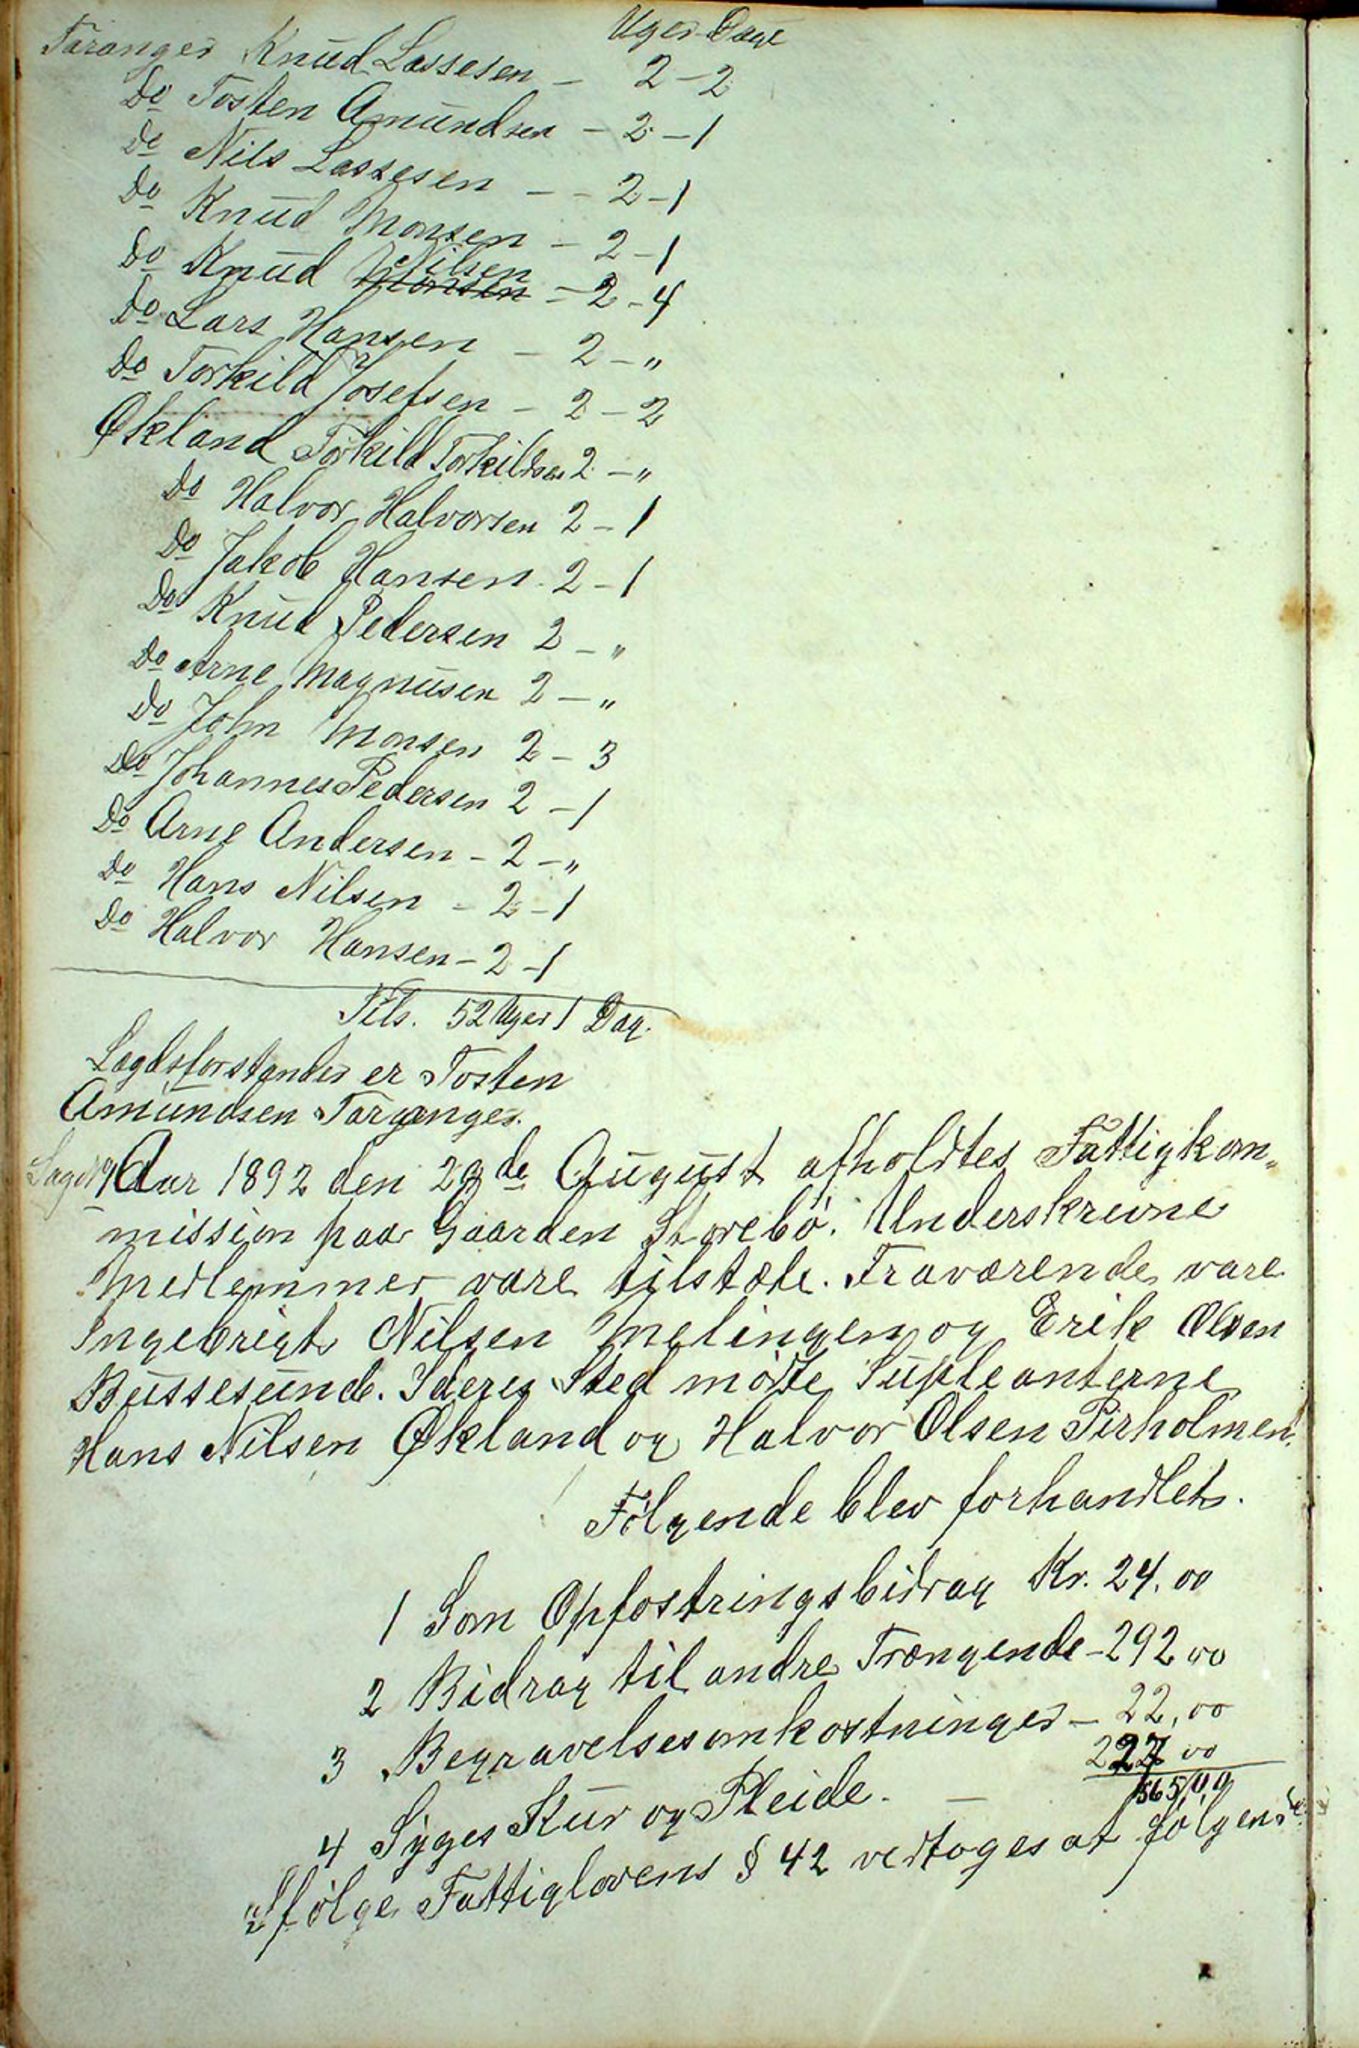 Uger Dage
Taranger Knud Lassesen - 2 - 2
Do Tosten Amundsen - 2 - 1
Do Nils Lassesen - - 2 - 1
Do Knud Monsen - 2 - 1
Do Knud Nilsen - 2 - 4
Do Lars Hansen - 2 - "
Do Torkild Josefsen - 2 - 2
Økland Torkild Torkildsen 2 - "
Do Halvor Halvorsen 2 - 1
Do Jakob Hansen - 2 - 1
Do Knud Pedersen 2 - "
Do Arne Magnusen 2 - "
Do John Monsen 2 - 3
Do Johannes Pedersen 2 - 1
Do Arne Andersen - 2 - "
Do Hans Nilsen - 2 - 1
Do Halvor Hansen - 2 - 1
Tils. 52 Uger 1 Dag.
Lægdsforstander er Tosten
Amundsen Taranger.
Aar 1892 den 29de August afholdtes Fattigkom„
mission paa Gaarden Storebø. Underskrevne
Medlemmer vare tilstæde. Fraværende vare
Ingebrigt Nilsen Mælingen og Erik Olsen
Bussesund. I deres Sted mødte Supleanterne
Hans Nilsen Økland og Halvor Olsen Pirholmen.
Følgende blev forhandlet.
1 Som Opfostringsbidrag Kr. 24,00
2 Bidrag til andre Trængende - 292,00
3 Begravelsesomkostninger - 22,00
4 Syges Kur og Pleide. - 227 00
565,00
Ifølge Fattiglovens § 42 vedtoges at følgende